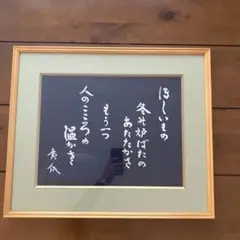 ほしいもの
冬は炉ばたの
あたたかさ
もう一つ
人のこころの
温かさ